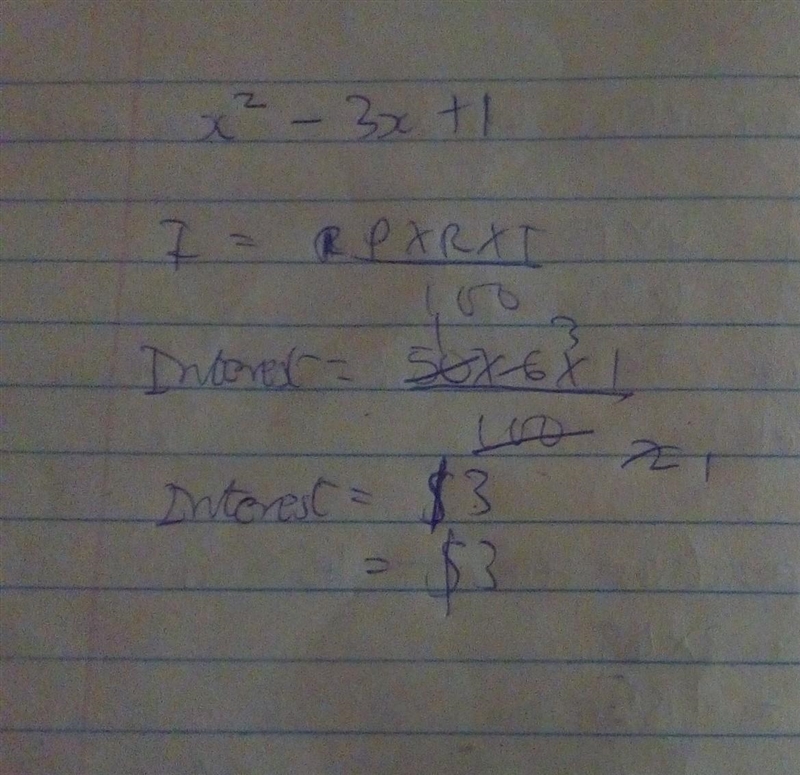 x² - 3x + 1
I = P X R X T
100
1 3
Interest = 50 x 6 x 1
100 2 1
Interest = $3
= $3